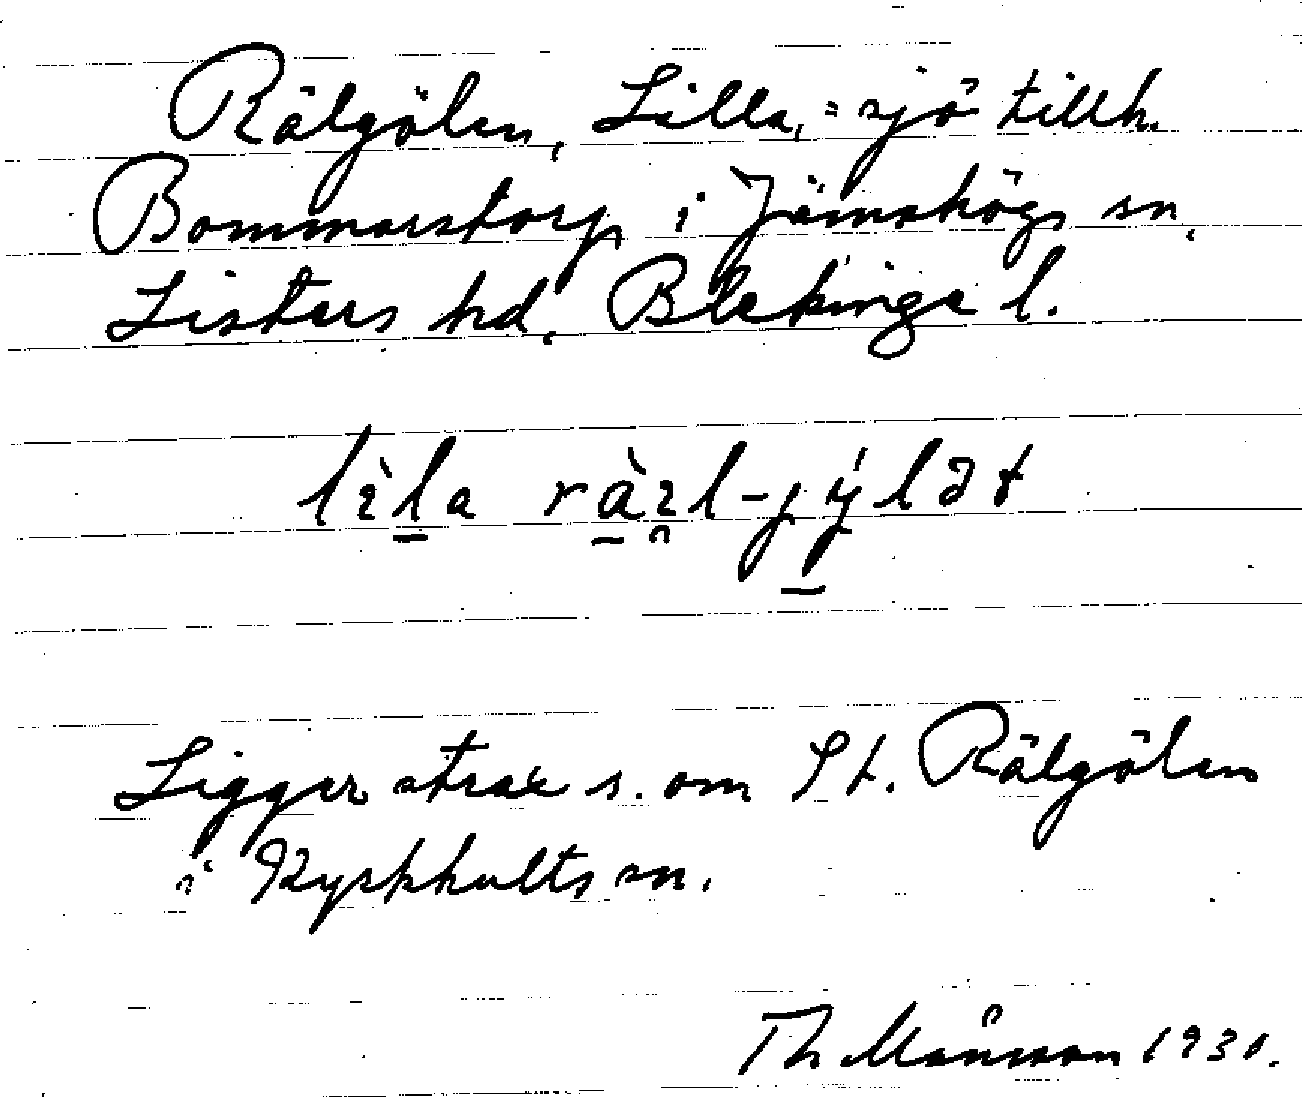 Rälgölen, Lilla, = sjö tillh.
Bommarstorp i Jämshögs sn,
Listers hd, Blekinge l.
lìla ràıl-jýlət
Ligger strax s. om St. Rälgölen
i Kyrkhults sn.
Th Månsson 1931.